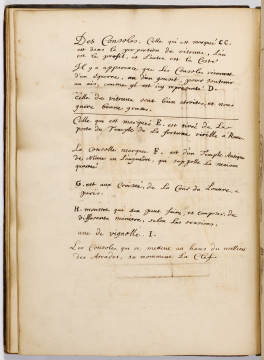 Des Consoles. Celle qui est marqué CC.
est dans la proportion de vitruve, l'un
est le profil, et l'autre est le Costé
Il y a apparence que les Consoles viennent
d'un Equerre, ou d'un goust, pour soutenir
un ais, comme il est icy représenté D.
Celle de vitruve sont bien étroites, et n'ont
guère bonne grace.
Celle qui est marquée E. est tirée de la
porte du Temple de la fortune virille à Rome.
La Consolle marquée F. est d'un Temple Antique
de Nisme en Languedoc, qui s'appelle la maison
quarrée
G. est aux Croisée, de la Cour du Louvre, a
paris.
H. monstre que l'on peut faire, et composer de
differente maniere, selon les occasions.
une de vignolle. I.
Les Consoles qui se mettent au haut du milieu
des Arcades, se nomment La Clef.